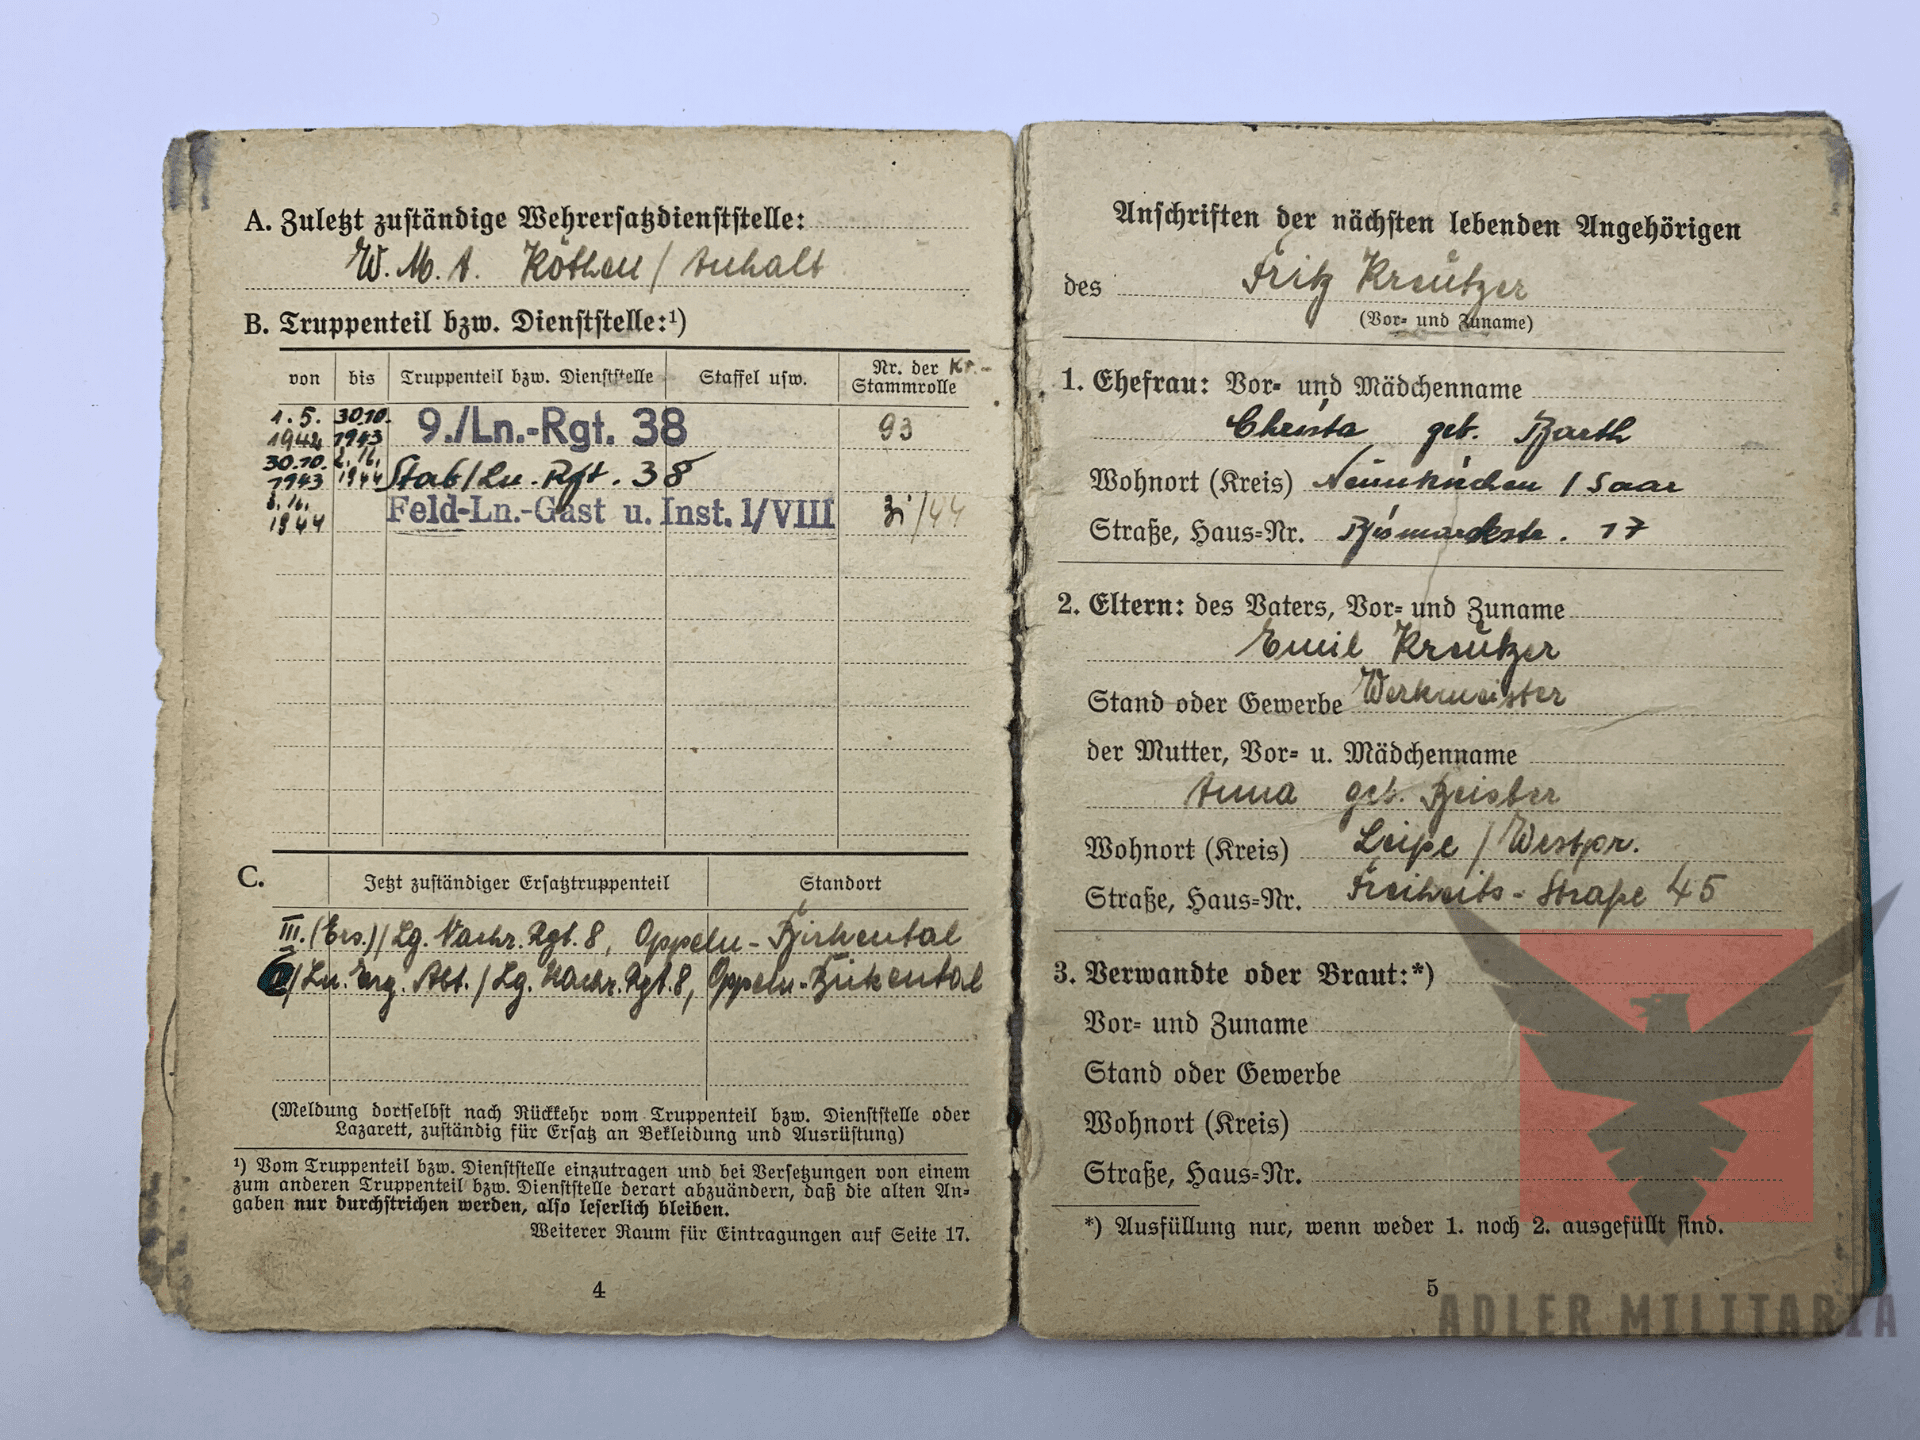 A. Zuletzt zuständige Wehrersatzdienststelle:
W. M. A. Köthen / Anhalt
B. Truppenteil bzw. Dienststelle:¹)
von bis Truppenteil bzw. Dienststelle Staffel usw. Nr. der Kr.-Stammrolle
1. 5. 1942 30.10. 1943 9./Ln.-Rgt. 38 93
30.10. 1943 1944 Stab/Ln.-Rgt. 38
1944 Feld-Ln.-Gast u. Inst. 1/VIII 31/44
C. Jetzt zuständiger Ersatztruppenteil Standort
III. (Ers.)/Lg. Nachr. Rgt. 8, Oppeln-Birkental
/Ln. Erg. Abt./Lg. Nachr. Rgt. 8, Oppeln-Birkental
(Meldung dortselbst nach Rückkehr vom Truppenteil bzw. Dienststelle oder
Lazarett, zuständig für Ersatz an Bekleidung und Ausrüstung)
¹) Vom Truppenteil bzw. Dienststelle einzutragen und bei Versetzungen von einem
zum anderen Truppenteil bzw. Dienststelle derart abzuändern, daß die alten An-
gaben nur durchstrichen werden, also leserlich bleiben.
Weiterer Raum für Eintragungen auf Seite 17.
4
Anschriften der nächsten lebenden Angehörigen
des Fritz Kreutzer
(Vor- und Zuname)
1. Ehefrau: Vor- und Mädchenname
Christa geb. Barth
Wohnort (Kreis) Neunkirchen / Saar
Straße, Haus-Nr. Bismarckstr. 17
2. Eltern: des Vaters, Vor- und Zuname
Emil Kreutzer
Stand oder Gewerbe Werkmeister
der Mutter, Vor- u. Mädchenname
Anna geb.
Wohnort (Kreis) Leipe / Westpr.
Straße, Haus-Nr. Freiheits-Straße 45
3. Verwandte oder Braut:*)
Vor- und Zuname
Stand oder Gewerbe
Wohnort (Kreis)
Straße, Haus-Nr.
*) Ausfüllung nur, wenn weder 1. noch 2. ausgefüllt sind.
5
ADLER MILITARIA